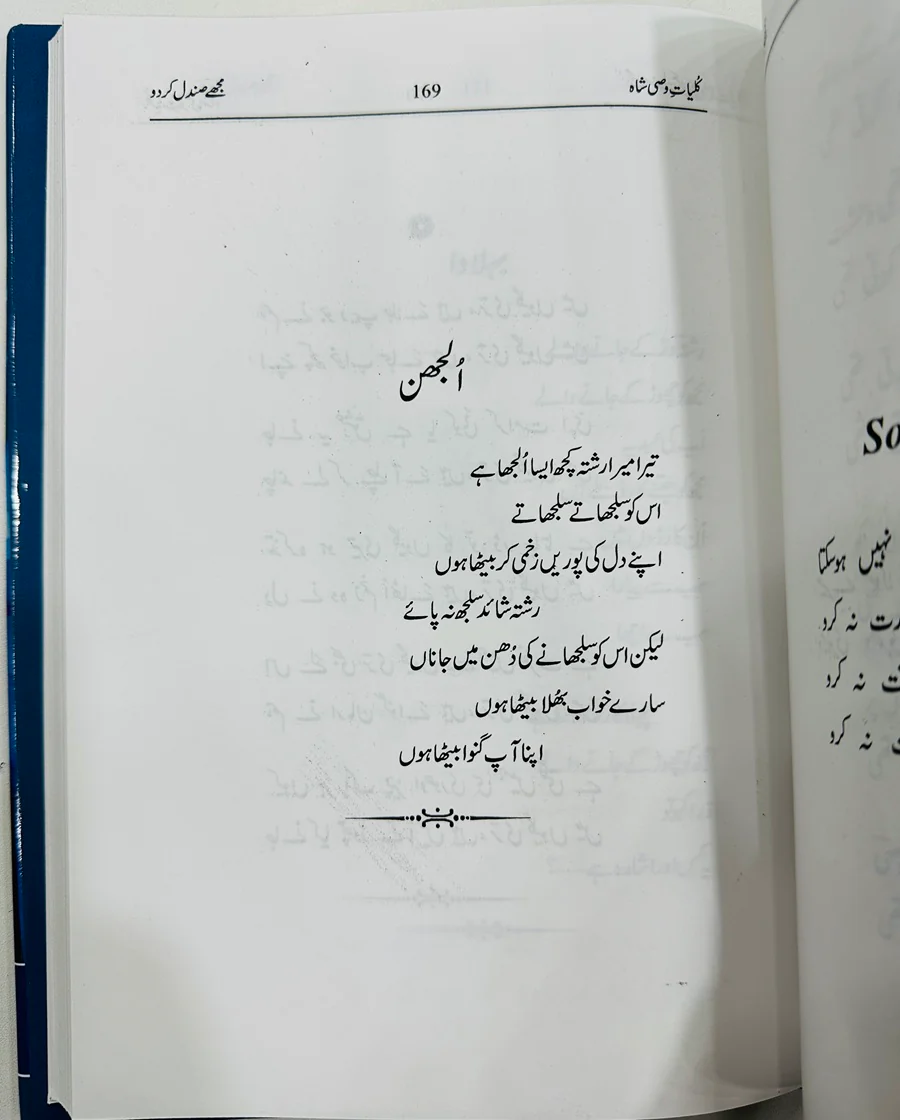 کُلیاتِ وصی شاہ 169 مجھے صندل کردو
اُلجھن
تیرا میرا رشتہ کچھ ایسا اُلجھا ہے
اس کو سلجھاتے سلجھاتے
اپنے دل کی پوریں زخمی کر بیٹھا ہوں
رشتہ شائد سلجھ نہ پائے
لیکن اس کو سلجھانے کی دُھن میں جاناں
سارے خواب بھُلا بیٹھا ہوں
اپنا آپ گنوا بیٹھا ہوں
So
نہیں ہوسکتا
نہ کرد
نہ کرد
نہ کرد